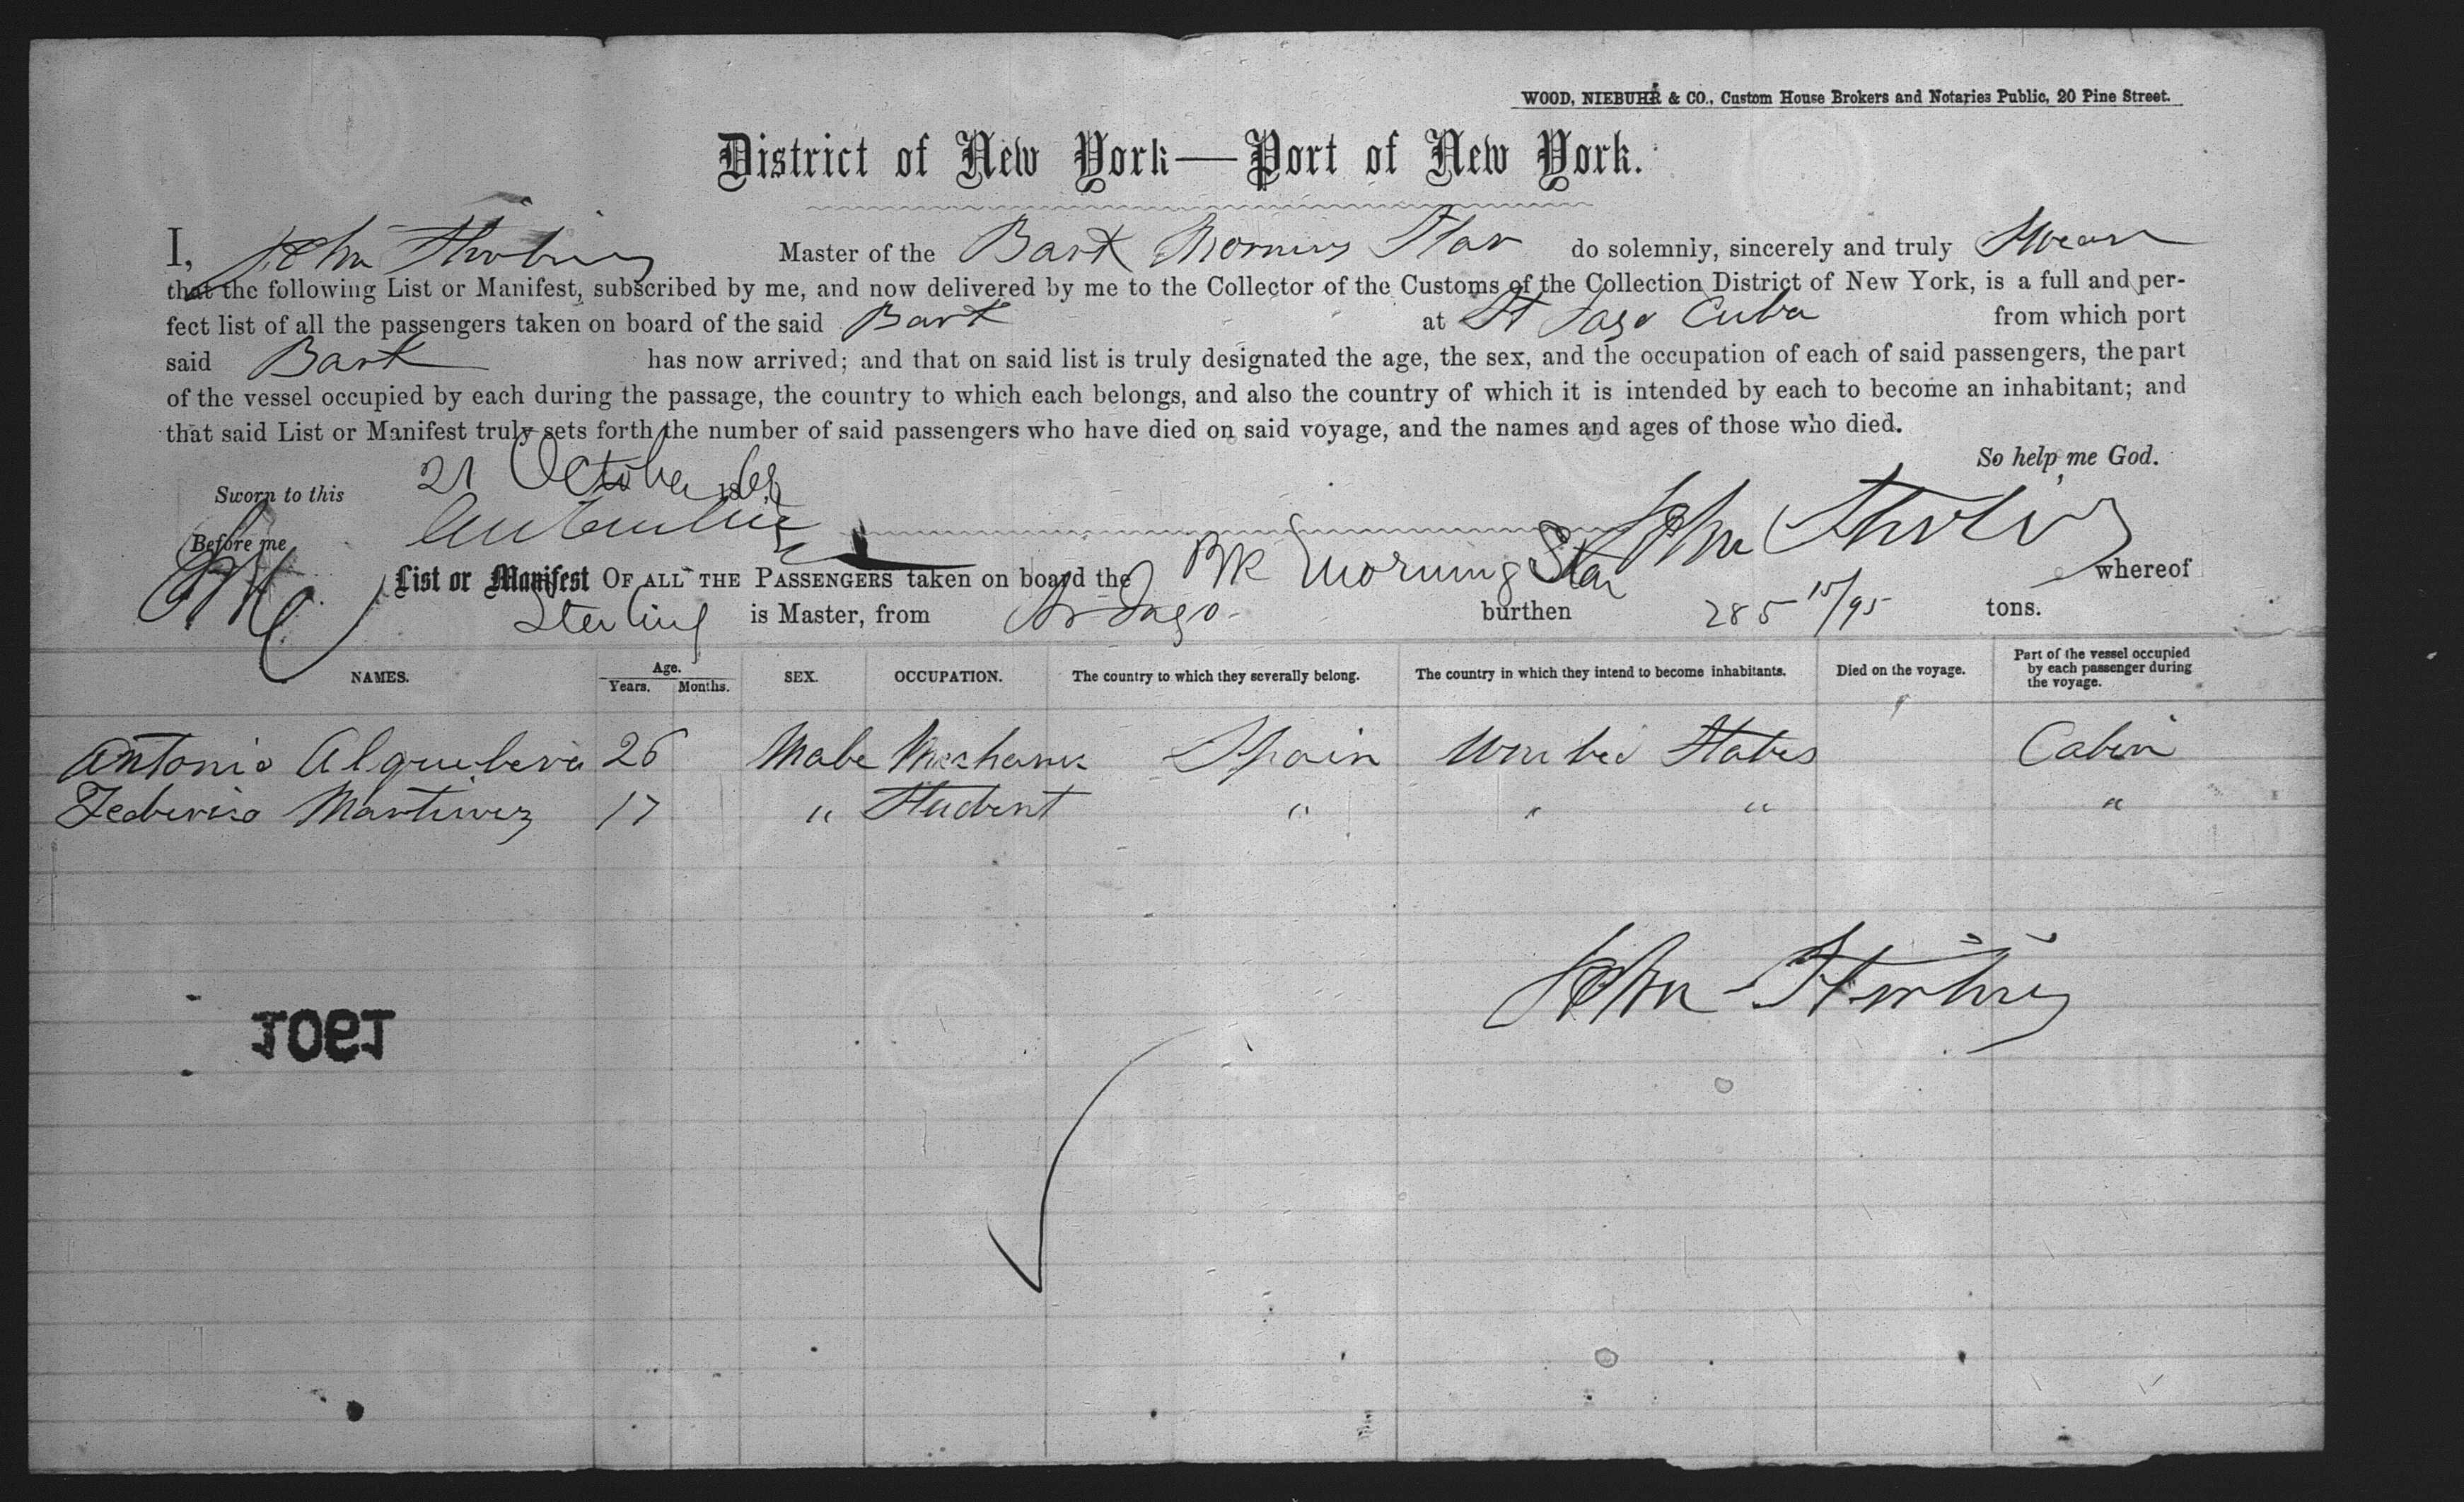 WOOD, NIEBUHR & CO., Custom House Brokers and Notaries Public, 20 Pine Street.
District of New York—Port of New York.
I, John Master of the Bark Morning Star do solemnly, sincerely and truly Swear
that the following List or Manifest, subscribed by me, and now delivered by me to the Collector of the Customs of the Collection District of New York, is a full and per-
fect list of all the passengers taken on board of the said Bark at St Jago Cuba from which port
said Bark has now arrived; and that on said list is truly designated the age, the sex, and the occupation of each of said passengers, the part
of the vessel occupied by each during the passage, the country to which each belongs, and also the country of which it is intended by each to become an inhabitant; and
that said List or Manifest truly sets forth the number of said passengers who have died on said voyage, and the names and ages of those who died.
So help me God.
Sworn to this 21 October 186
Before me
John
List or Manifest OF ALL THE PASSENGERS taken on board the Bk Morning Star whereof
Sterling is Master, from St Jago burthen 285 15/95 tons.
NAMES. Age. Years. Months. SEX. OCCUPATION. The country to which they severally belong. The country in which they intend to become inhabitants. Died on the voyage. Part of the vessel occupied by each passenger during the voyage.
Antonio 26 Male Mechanic Spain United States Cabin
Federico Martinez 17 " Student " " " "
John
1901